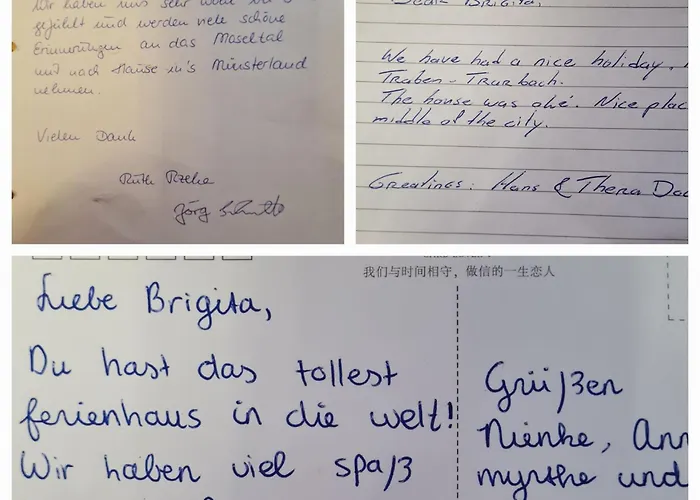 Wir haben uns sehr wohl
gefühlt und werden viele schöne
Erinnerungen an das Moseltal
mit nach Hause in's Münsterland
nehmen.
Vielen Dank
Ruth
Jörg
Dear Brigita,
We have had a nice holiday.
Traben-Trarbach.
The house was oké. Nice plac
middle of the city.
Greatings: Hans & Thera
我们与时间相守，做信的一生恋人
Liebe Brigita,
Du hast das tollest
ferienhaus in die welt!
Wir haben viel spaß
Grüßen
Nienke, Ann
myrthe und